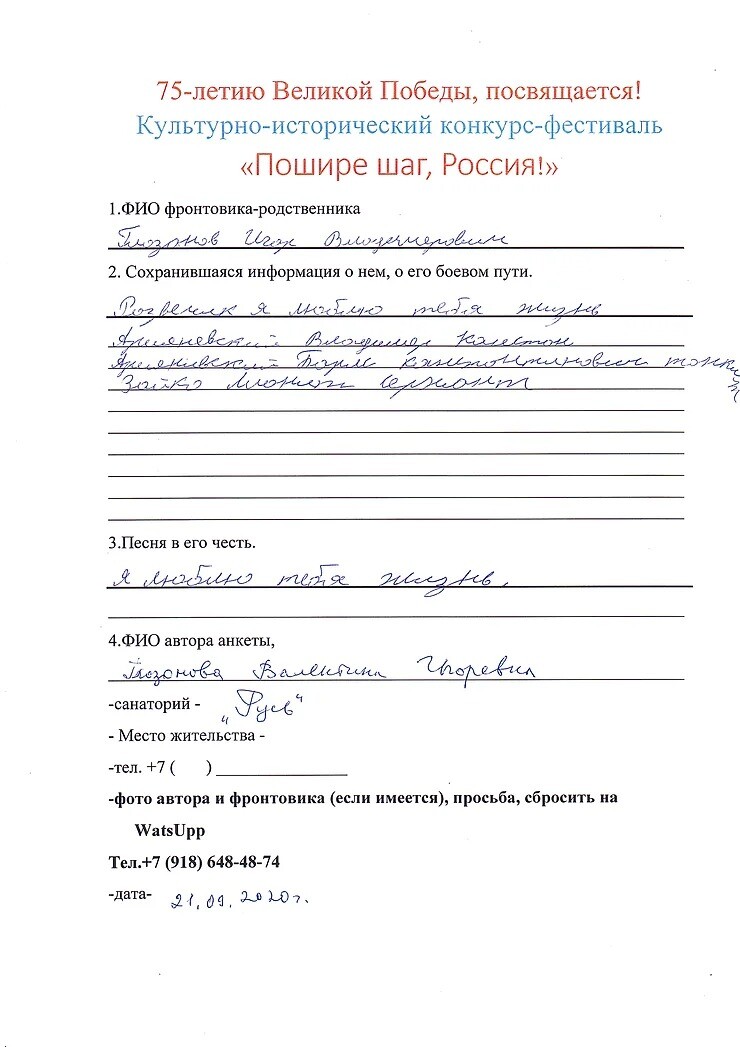 75-летию Великой Победы, посвящается!
Культурно-исторический конкурс-фестиваль
«Пошире шаг, Россия!»
1.ФИО фронтовика-родственника
Глазунов Игорь Владимирович
2. Сохранившаяся информация о нем, о его боевом пути.
я люблю тебя жизнь
Владимир
Зайко Сержант
3.Песня в его честь.
Я люблю тебя жизнь.
4.ФИО автора анкеты,
Валентина Игоревна
-санаторий - "Русь"
- Место жительства -
-тел. +7 ( )
-фото автора и фронтовика (если имеется), просьба, сбросить на
WatsUpp
Тел.+7 (918) 648-48-74
-дата- 21.09.2020г.